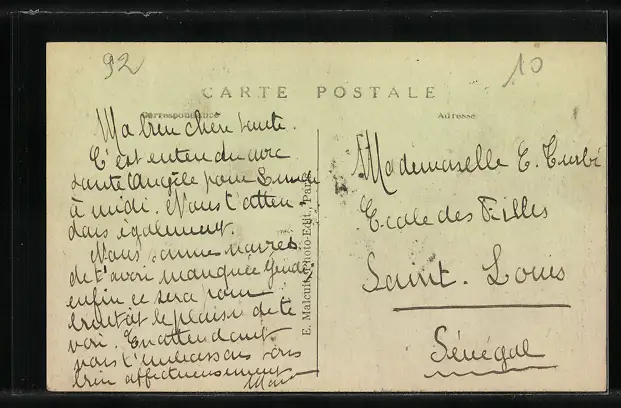 92
10
CARTE POSTALE
Correspondance
Adresse
Ma bien chère tante.
C'est entendu avec
tante Angèle pour
à midi. Nous t'atten
dons également.
Nous sommes navrés
de t'avoir manquée
enfin ce sera pour
bientôt le plaisir de te
voir. En attendant
nous t'embrassons tous
bien affectueusement
E. Malcuit, Photo-Edit., Paris
Mademoiselle E.
Ecole des Filles
Saint. Louis
Sénégal